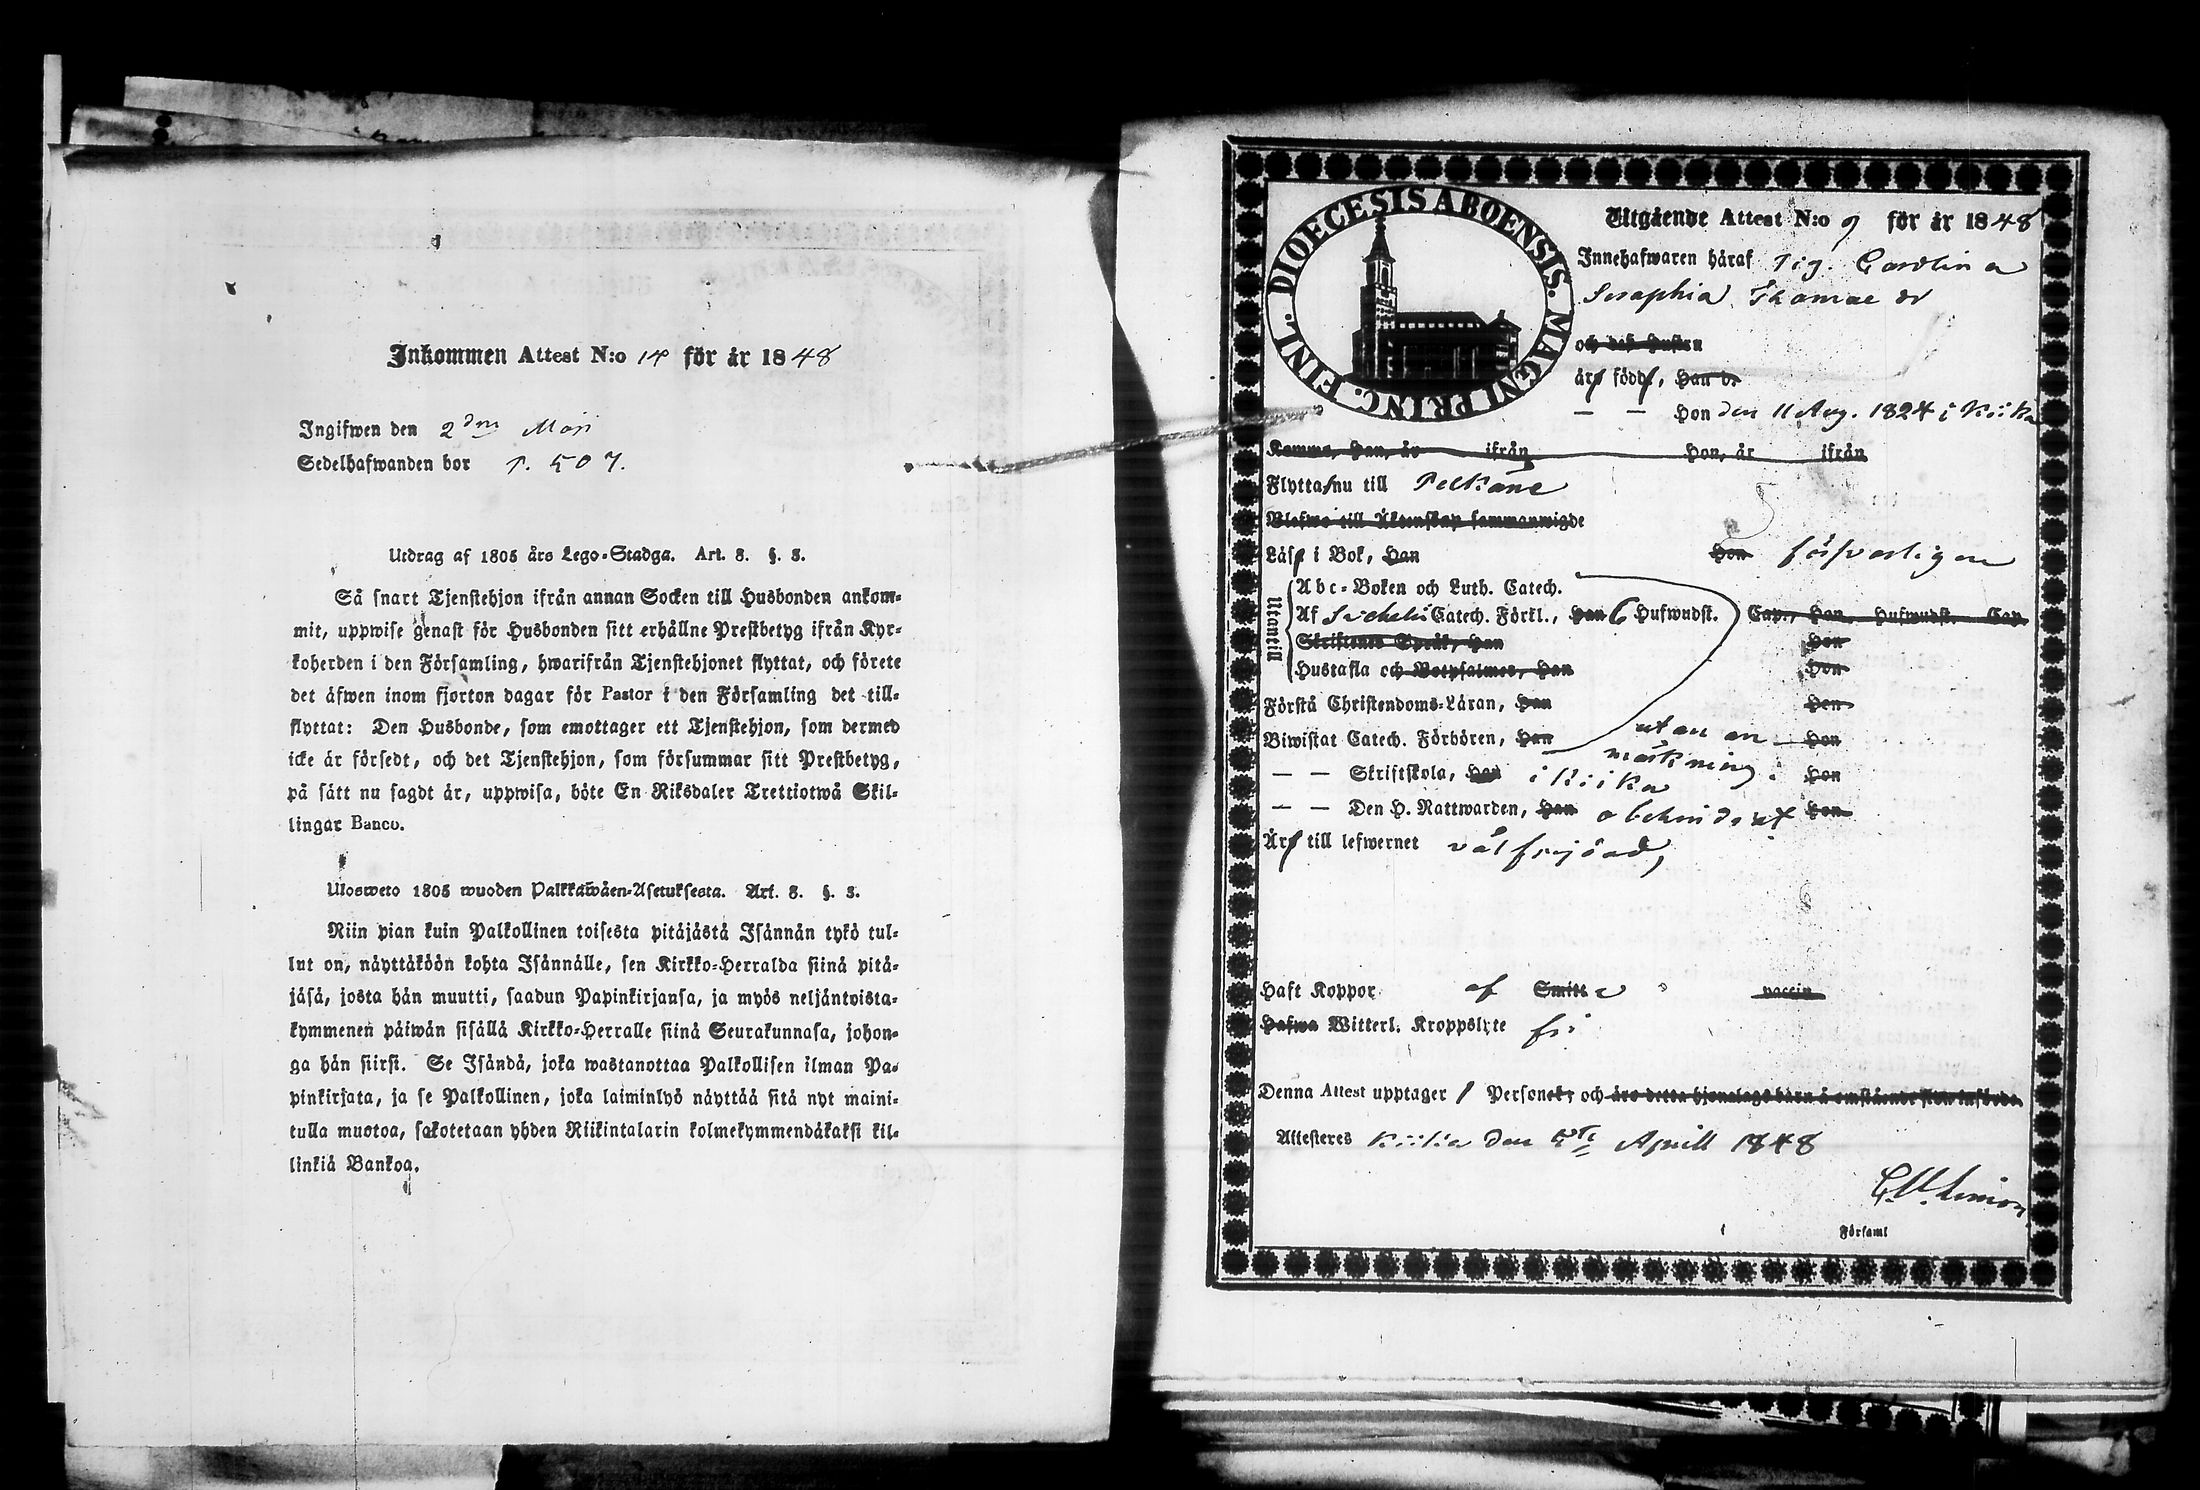 Inkommen Attest N:o 14 för år 1848
Ingifwen den 2dra Maji
Sedelhafwanden bor p. 507.
Utdrag af 1805 års Lego-Stadga. Art. 8. §. 3.
Så snart Tjenstehjon ifrån annan Socken till Husbonden ankom-
mit, uppwise genast för Husbonden sitt erhållne Prestbetyg ifrån Kyr-
koherden i den Församling, hwarifrån Tjenstehjonet flyttat, och förete
det äfwen inom fjorton dagar för Pastor i den Församling det till-
flyttat: Den Husbonde, som emottager ett Tjenstehjon, som dermed
icke är försedt, och det Tjenstehjon, som försummar sitt Prestbetyg,
på sätt nu sagdt är, uppwisa, böte En Riksdaler Trettiotwå Skil-
lingar Banco.
Ulosweto 1805 wuoden Palkkawäen-Asetuksesta. Art. 8. §. 3.
Niin pian kuin Palkollinen toisesta pitäjästä Isännän tykö tul-
lut on, näyttäköön kohta Isännälle, sen Kirkko-Herralda siinä pitä-
jäsä, josta hän muutti, saadun Papinkirjansa, ja myös neljäntoista-
kymmenen päiwän sisällä Kirkko-Herralle siinä Seurakunnasa, johon-
ga hän siirsi. Se Isändä, joka wastanottaa Palkollisen ilman Pa-
pinkirjata, ja se Palkollinen, joka laiminlyö näyttää sitä nyt maini-
tulla muotoa, sakotetaan yhden Riikintalarin kolmekymmendäkaksi kil-
linkiä Bankoa.
DIOECESIS ABOENSIS. MAGNI PRINC. FINL.
Utgående Attest N:o 9 för år 1848
Innehafwaren häraf Pig. Carolina
Seraphia Thomae dr
och des Hustru
äro födde, Han d.
— — Hon den 11 Aug. 1824 i Kiika
Komme, Han, år ifrån Hon, år ifrån
Flytta nu till Pelkäne
Blefwo till Äktenskap sammanwigde
Läsa i Bok, Han Hon försvarligen
Utantill
Abc-Boken och Luth. Catech.
Af Svebelii Catech. Förkl., Han 6 Hufwudst. Cap., Han, Hufwudst. Cap.
Skriftenes Språk, Han Hon
Hustafla och Botpsalmer, Han Hon
Förstå Christendoms-Läran, Han Hon
Biwistat Catech. Förhören, Han utan an Hon
märkning.
— — Skriftskola, Han i Kiika Hon
— — Den H. Nattwarden, Han obehindrat Hon
Äro till lefwernet välfrejdad,
Haft Koppor af Smitta vaccin
Hafwa Witterl. Kroppslyte fri
Denna Attest upptager 1 Personer och äro detta hjonelags barn å omstående sida införde.
Attesteres Kiika den 5te Aprill 1848
Församl